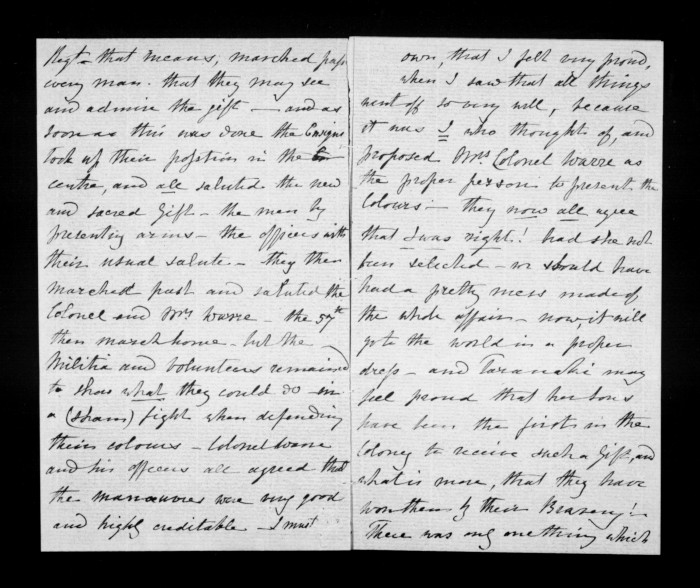 Regt – that means, marched past
every man. that they may see
and admire the gift — and as
soon as this was done the Ensigns
took up their position in the
centre, and all saluted the new
and sacred Gift – the men by
presenting arms – the officers with
their usual salute – they then
marched past and saluted the
Colonel and Mrs Warre – the 57th
then march home – but the
Militia and Volunteers remained
to show what they could do – in
a (sham) fight when defending
their colours – Colonel Warre
and his officers all agreed that
the manœuvres were very good
and highly creditable – I must
own, that I felt very proud,
when I saw that all things
went off so very well, because
it was I who thought of, and
proposed Mrs Colonel Warre as
the proper person to present the
Colours – they now all agree
that I was right! had she not
been selected – we should have
had a pretty mess made of
the whole affair – now, it will
go to the world in a proper
dress – and Taranaki may
feel proud that her sons
have been the first in the
Colony to receive such a Gift, and
what is more, that they have
won them by their Bravery! –
There was only one thing which